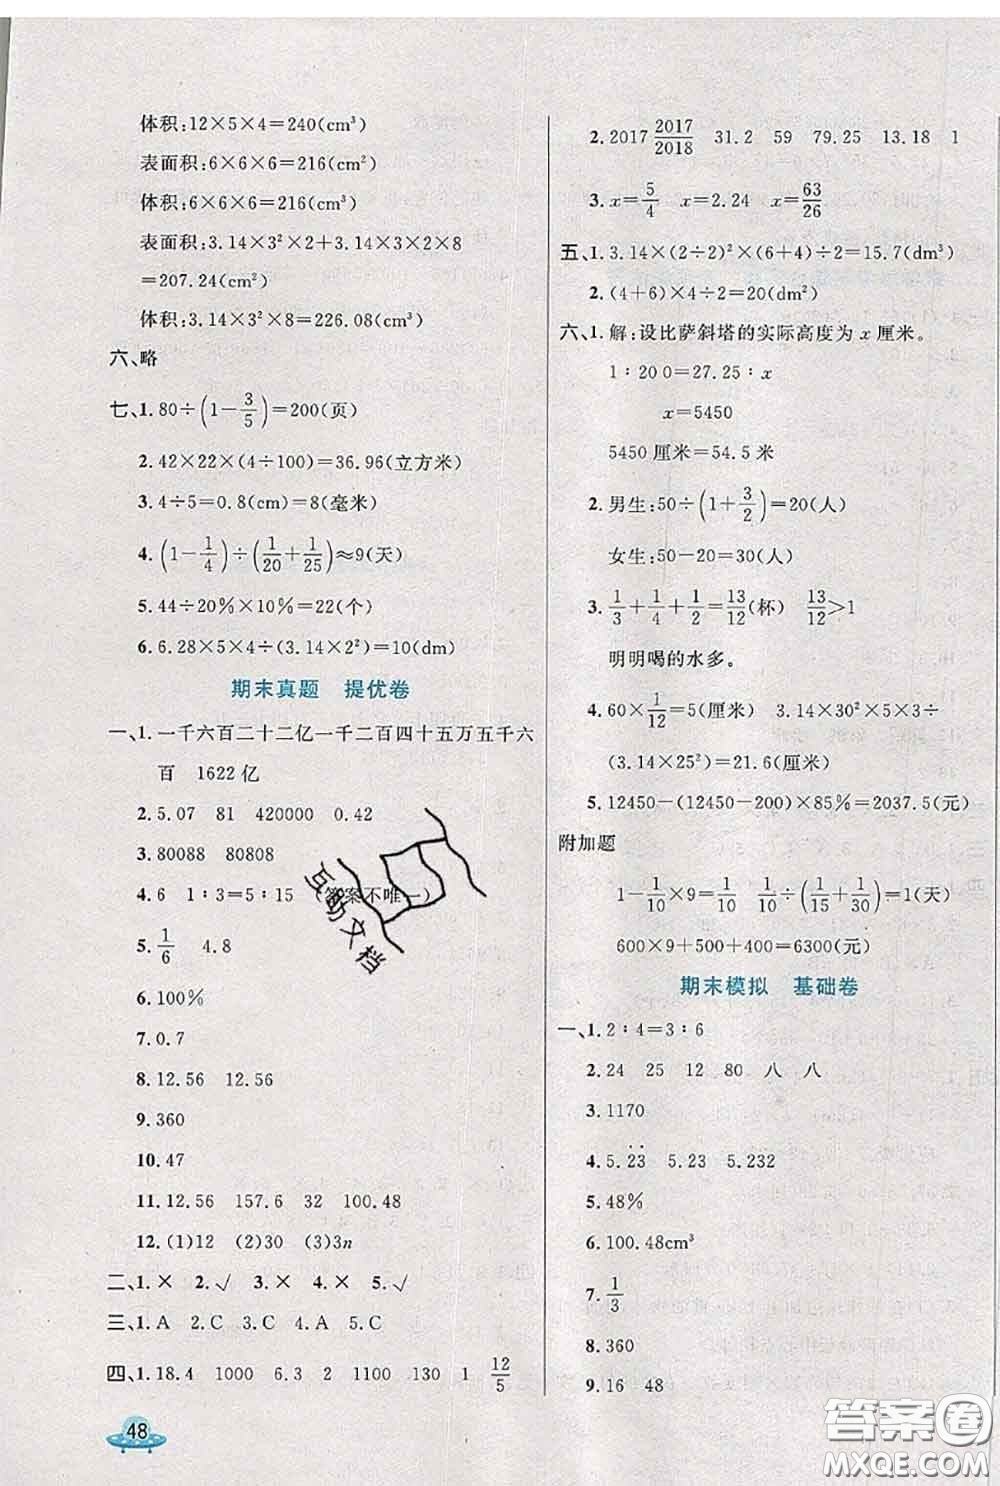 体积:12×5×4=240(cm³)
表面积:6×6×6=216(cm²)
体积:6×6×6=216(cm³)
表面积:3.14×3²×2+3.14×3×2×8
=207.24(cm²)
体积:3.14×3²×8=226.08(cm³)
六、略
七、1.80÷(1-3/5)=200(页)
2.42×22×(4÷100)=36.96(立方米)
3.4÷5=0.8(cm)=8(毫米)
4.(1-1/4)÷(1/20+1/25)≈9(天)
5.44÷20%×10%=22(个)
6.6.28×5×4÷(3.14×2²)=10(dm)
期末真题 提优卷
一、1.一千六百二十二亿一千二百四十五万五千六
百 1622亿
2.5.07 81 420000 0.42
3.80088 80808
4.6 1∶3=5∶15 (答案不唯一)
5.1/6 4.8
6.100%
7.0.7
8.12.56 12.56
9.360
10.47
11.12.56 157.6 32 100.48
12.(1)12 (2)30 (3)3n
二、1.× 2.√ 3.× 4.× 5.√
三、1.A 2.C 3.C 4.A 5.C
四、1.18.4 1000 6.3 2 1100 130 1 12/5
48
2.2017 2017/2018 31.2 59 79.25 13.18 1
3.x=5/4 x=2.24 x=63/26
五、1.3.14×(2÷2)²×(6+4)÷2=15.7(dm³)
2.(4+6)×4÷2=20(dm²)
六、1.解:设比萨斜塔的实际高度为x厘米。
1∶200=27.25∶x
x=5450
5450厘米=54.5米
2.男生:50÷(1+3/2)=20(人)
女生:50-20=30(人)
3.1/3+1/4+1/2=13/12(杯) 13/12>1
明明喝的水多。
4.60×1/12=5(厘米) 3.14×30²×5×3÷
(3.14×25²)=21.6(厘米)
5.12450-(12450-200)×85%=2037.5(元)
附加题
1-1/10×9=1/10 1/10÷(1/15+1/30)=1(天)
600×9+500+400=6300(元)
期末模拟 基础卷
一、1.2∶4=3∶6
2.24 25 12 80 八 八
3.1170
4.5.2̇3̇ 5.23 5.232
5.48%
6.100.48cm³
7.1/3
8.360
9.16 48
互助文档
答案圈
MXQE.COM